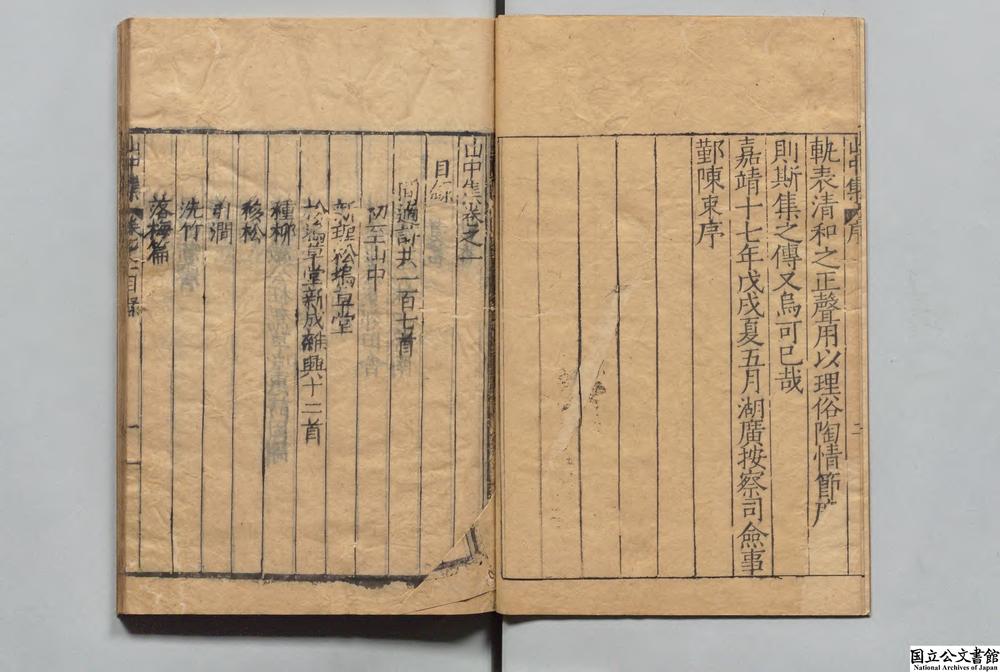 山中集 序 二
軌表清和之正聲用以理俗陶情節
則斯集之傳又烏可已哉
嘉靖十七年戊戌夏五月湖廣按察司僉事
鄞陳束序
山中集卷之一
目錄
適 共一百七首
初至山中
新理松塢草堂
松塢草堂新成雜興十二首
種柳
移松
澗
洗竹
落梅篇
山中集 卷之一目錄 一
国立公文書館
National Archives of Japan